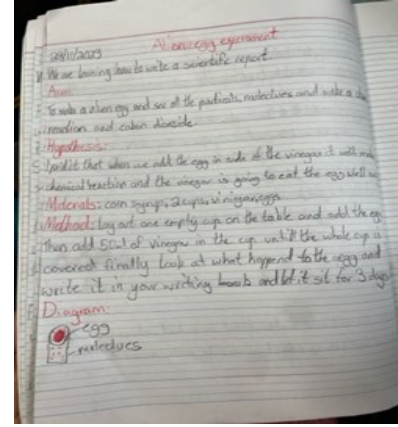 Alien egg experiment
28/11/2023
We are learning how to write a scientific report.
Aim:
To make a alien egg and see all the particals, molectues and make a
reaction and cabon dioxide
Hypothesis:
I pridit that when we add the egg in side of the vinegar it well make
chemical reaction and the vinegar is going to eat the egg shell
Materials: corn syrup, 2 cups, vinigar, eggs
Method: lay out one empty cup on the table and add the egg
Then add 50ml of vinegar in the cup untill the whole cup is
covered finally look at what happend to the eggy and
write it in your writing book and let it sit for 3 days
Diagram:
egg
molectues